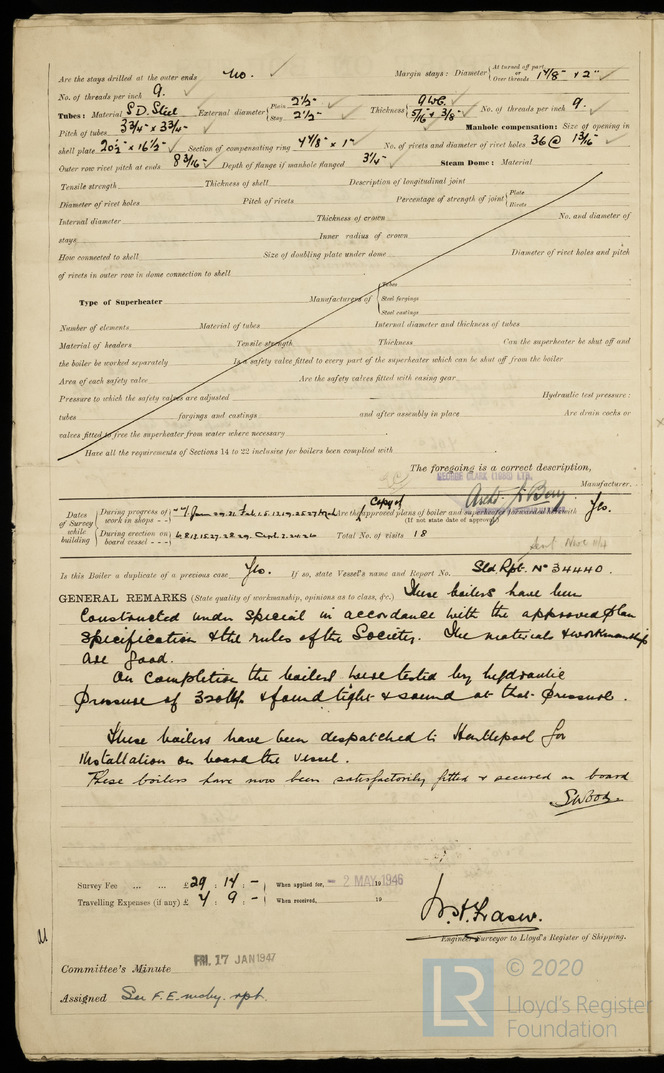 Are the stays drilled at the outer ends No. Margin stays: Diameter { At turned off part, or Over threads 1 7/8" + 2"
No. of threads per inch 9.
Tubes: Material S D. Steel External diameter { Plain 2 1/2" Stay 2 1/2" Thickness { 9 WG. 5/16" + 3/8" No. of threads per inch 9.
Pitch of tubes 3 3/4" x 3 3/4" Manhole compensation: Size of opening in
shell plate 20 1/2" x 16 1/2" Section of compensating ring 4 7/8" x 1" No. of rivets and diameter of rivet holes 36 @ 1 3/16"
Outer row rivet pitch at ends 8 3/16" Depth of flange if manhole flanged 3 1/4" Steam Dome: Material
Tensile strength Thickness of shell Description of longitudinal joint
Diameter of rivet holes Pitch of rivets Percentage of strength of joint { Plate Rivets
Internal diameter Thickness of crown No. and diameter of
stays Inner radius of crown
How connected to shell Size of doubling plate under dome Diameter of rivet holes and pitch
of rivets in outer row in dome connection to shell
Type of Superheater Manufacturers of { Tubes Steel forgings Steel castings
Number of elements Material of tubes Internal diameter and thickness of tubes
Material of headers Tensile strength Thickness Can the superheater be shut off and
the boiler be worked separately Is a safety valve fitted to every part of the superheater which can be shut off from the boiler
Area of each safety valve Are the safety valves fitted with easing gear
Pressure to which the safety valves are adjusted Hydraulic test pressure:
tubes forgings and castings and after assembly in place Are drain cocks or
valves fitted to free the superheater from water where necessary
Have all the requirements of Sections 14 to 22 inclusive for boilers been complied with
The foregoing is a correct description,
GEORGE CLARK (1938) LTD.
Manufacturer.
Dates of Survey while building { During progress of work in shops - - Are the Copy of approved plans of boiler and superheater forwarded herewith Yes.
(If not state date of approval)
During erection on board vessel - - - Total No. of visits 18
Is this Boiler a duplicate of a previous case Yes. If so, state Vessel's name and Report No. Sld. Rpt. No 34440.
GENERAL REMARKS (State quality of workmanship, opinions as to class, &c.) These boilers have been
constructed under special in accordance with the approved plan
specification & the rules of the Society. The material & workmanship
are good.
On completion the boilers were tested by hydraulic
pressure of 320 lbs. & found tight & sound at that pressure.
These boilers have been despatched to Hartlepool for
installation on board the vessel.
These boilers have now been satisfactorily fitted & secured on board
Survey Fee ... ... £29 : 14 : - When applied for, - 2 MAY 1946 19
Travelling Expenses (if any) £ 4 : 9 : - When received, 19
Engineer Surveyor to Lloyd's Register of Shipping.
Committee's Minute FRI. 17 JAN 1947
Assigned See F.E. mchy. rpt.
LR © 2020
Lloyd's Register
Foundation